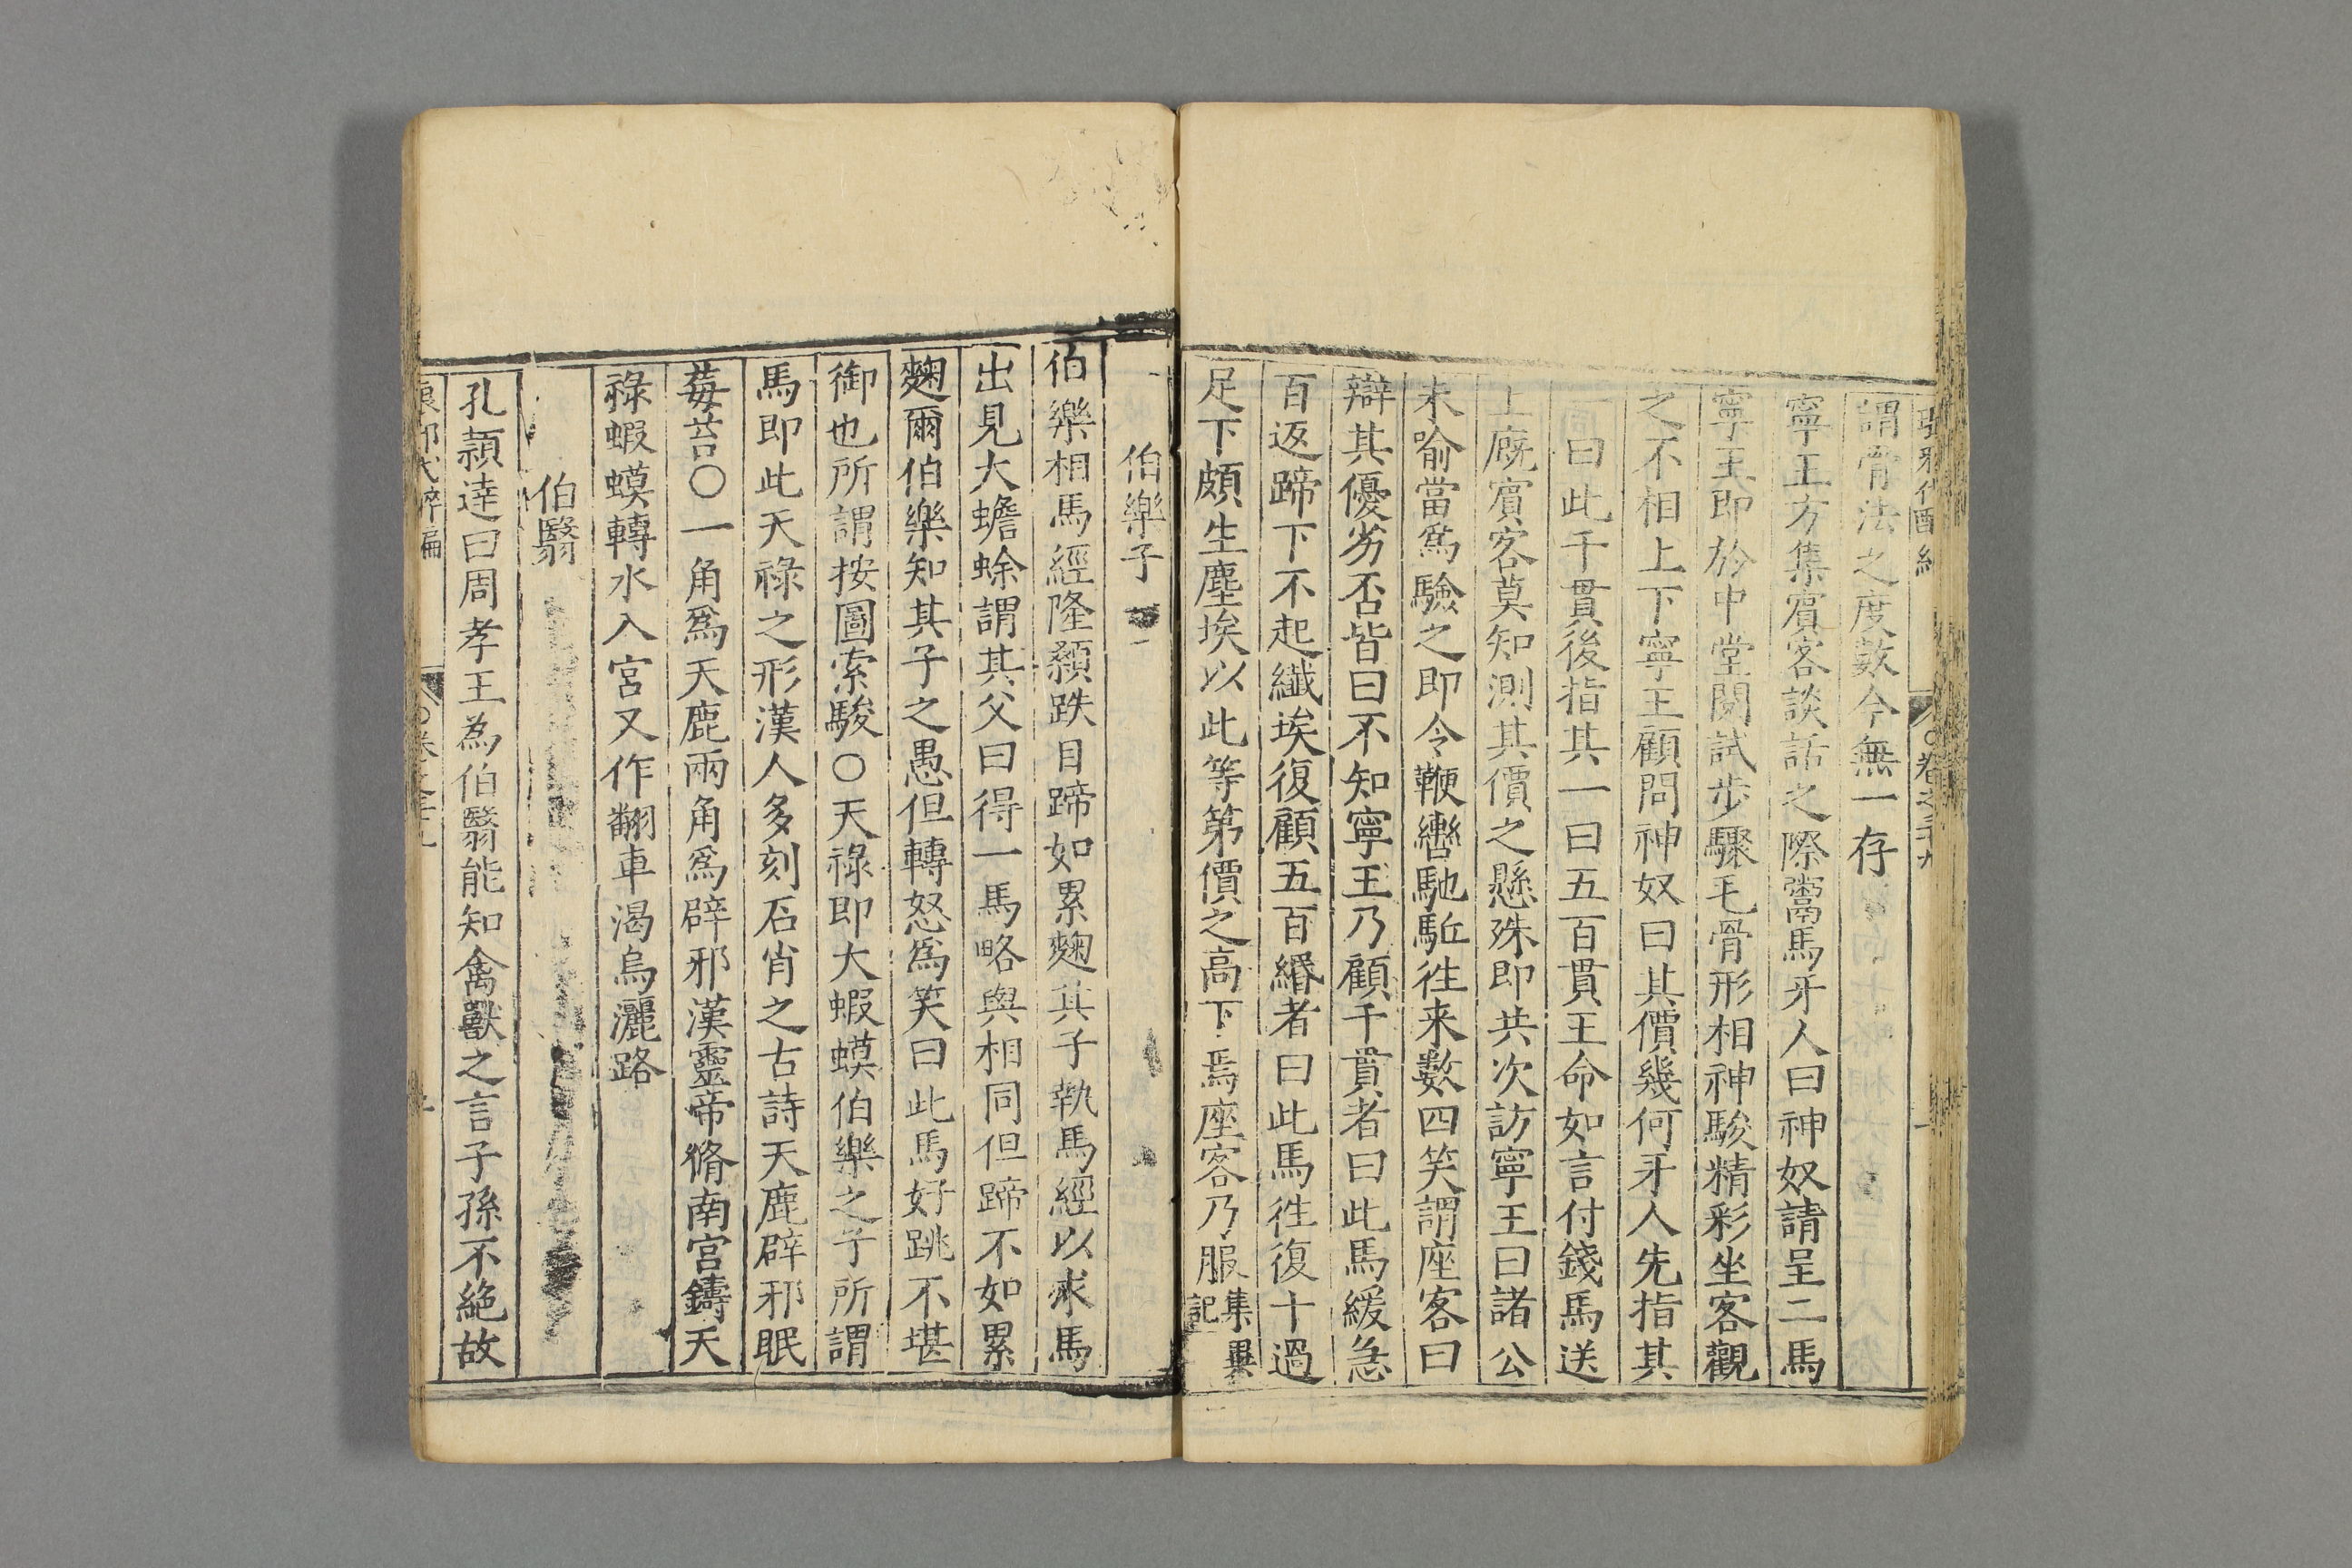 謂骨法之度數今無一存
寧王方集賓客談話之際鬻馬牙人曰神奴請呈二馬
寧王即於中堂閱試步驟毛骨形相神駿精彩坐客觀
之不相上下寧王顧問神奴曰其價幾何牙人先指其
曰此千貫後指其一曰五百貫王命如言付錢馬送
上廐賓客莫知測其價之懸殊即共次訪寧王曰諸公
未喻當爲驗之即令鞭轡馳駈徃来數四笑謂座客曰
辯其優劣否皆曰不知寧王乃顧千貫者曰此馬緩急
百返蹄下不起纖埃復顧五百緡者曰此馬徃復十過
足下頗生塵埃以此等第價之高下焉座客乃服集異記
伯樂子
伯樂相馬經隆顙跌目蹄如累麹其子執馬經以求馬
出見大蟾蜍謂其父曰得一馬略與相同但蹄不如累
麹爾伯樂知其子之愚但轉怒爲笑曰此馬好跳不堪
御也所謂按圖索駿〇天祿即大蝦蟆伯樂之子所謂
馬即此天祿之形漢人多刻石肖之古詩天鹿辟邪眠
莓苔〇一角爲天鹿兩角爲辟邪漢靈帝脩南宮鑄天
祿蝦蟆轉水入宮又作翻車渴烏灑路
伯翳
孔頴逹曰周孝王為伯翳能知禽獸之言子孫不絶故